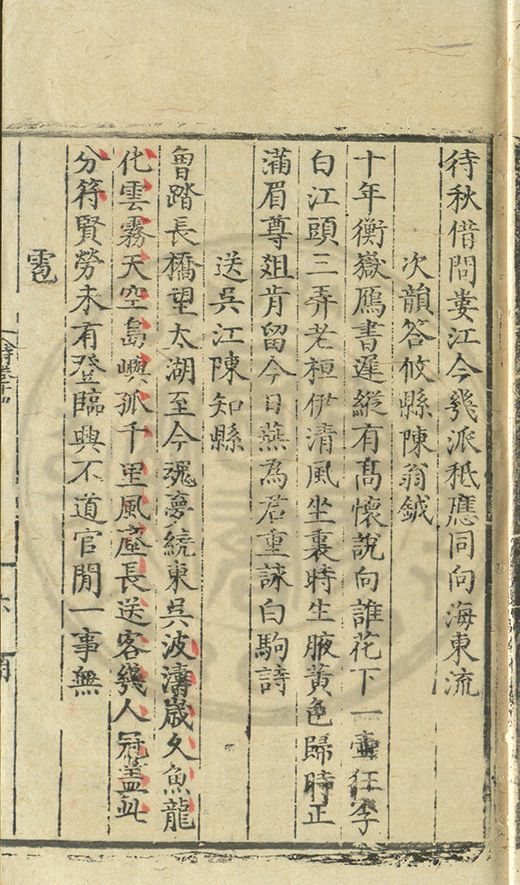 待秋借問婁江今幾派秪應同向海東流
次韻答攸縣陳翁鉞
十年衡嶽鴈書遲縱有高懷說向誰花下一壷狂李
白江頭三弄老桓伊清風坐裏時生腋黃色歸時正
滿眉尊俎肯留今日燕為君重誄白駒詩
送吳江陳知縣
曾踏長橋望太湖至今魂夢繞東吳波濤歲久魚龍
化雲霧天空島嶼孤千里風塵長送客幾人冠蓋此
分符賢勞未有登臨興不道官閒一事無
雹